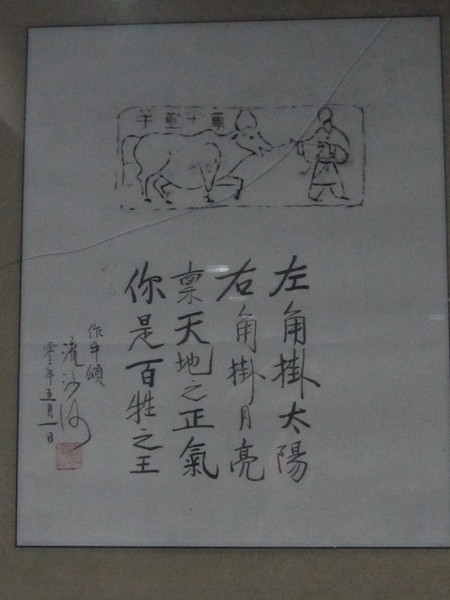 左角掛太陽
右角掛月亮
禀天地之正氣
你是百牲之王
作牛頌
流沙河
零二年五月一日